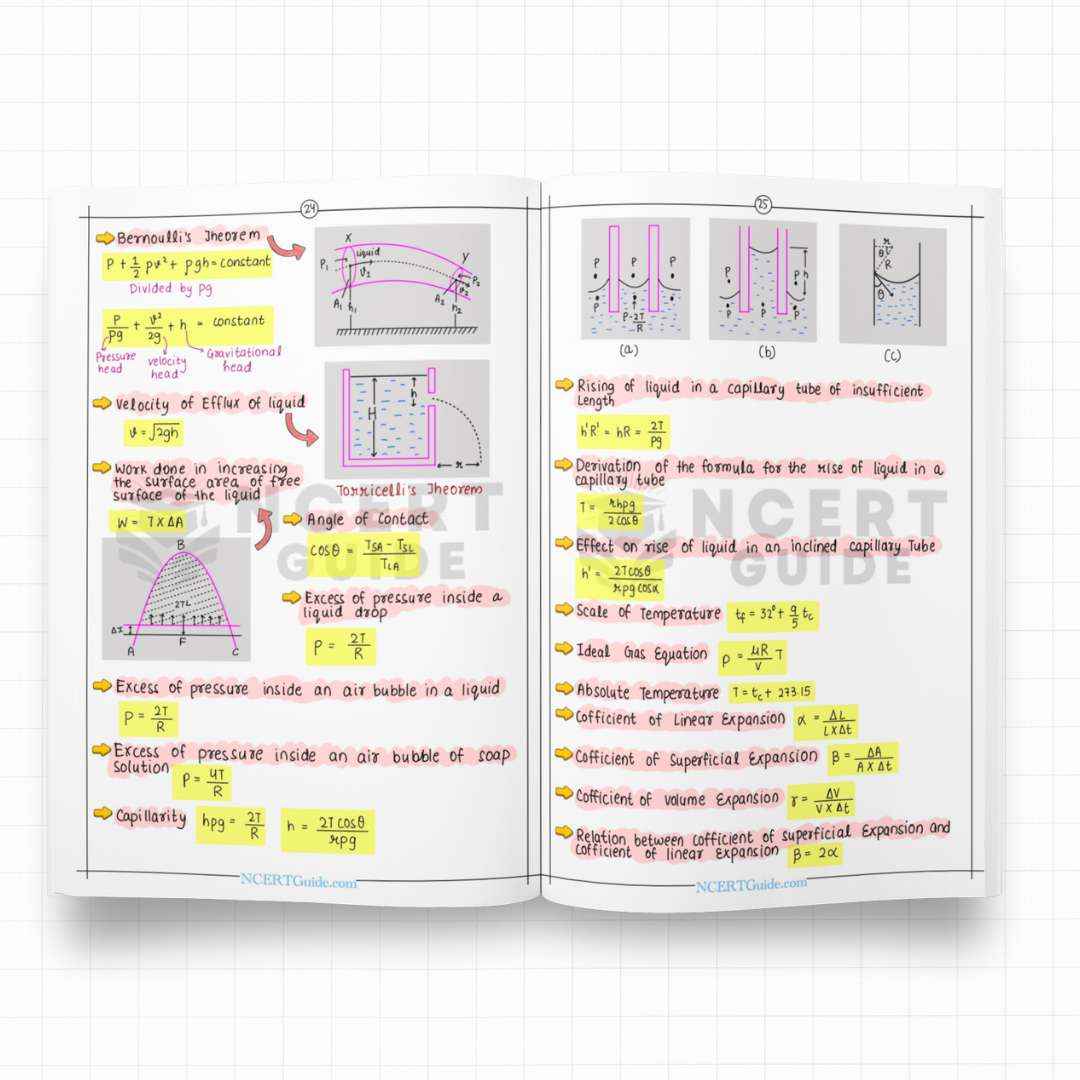 24
Bernoulli's Theorem
P + 1/2 ρv² + ρgh = constant
Divided by ρg
P/ρg + v²/2g + h = constant
Pressure head
velocity head
Gravitational head
X
liquid
P₁
v₁
Y
P₂
v₂
A₁
h₁
A₂
h₂
Velocity of Efflux of liquid
v = √2gh
H
h
x
Torricelli's Theorem
Work done in increasing
the surface area of free
surface of the liquid
W = T X ΔA
B
2TL
Δx
F
A
C
Angle of Contact
COSθ = TSA - TSL / TLA
Excess of pressure inside a
liquid drop
P = 2T/R
Excess of pressure inside an air bubble in a liquid
P = 2T/R
Excess of pressure inside an air bubble of soap
solution P = 4T/R
Capillarity hρg = 2T/R h = 2T cosθ/rρg
NCERTGuide.com
NCERT
GUIDE
25
P
P
P
P
P
P-2T/R
(a)
P
P
h
P
P
P
P
(b)
r
θ
R
θ
(c)
Rising of liquid in a capillary tube of insufficient
Length
h'R' = hR = 2T/ρg
Derivation of the formula for the rise of liquid in a
capillary tube
T = rhρg/2cosθ
Effect on rise of liquid in an inclined capillary Tube
h' = 2Tcosθ/rρgcosα
Scale of Temperature tF = 32° + 9/5 tc
Ideal Gas Equation P = μR/V T
Absolute Temperature T = tc + 273.15
Cofficient of Linear Expansion α = ΔL/L X Δt
Cofficient of Superficial Expansion β = ΔA/A X Δt
Cofficient of volume Expansion r = ΔV/V X Δt
Relation between cofficient of superficial Expansion and
cofficient of linear Expansion β = 2α
NCERTGuide.com
NCERT
GUIDE